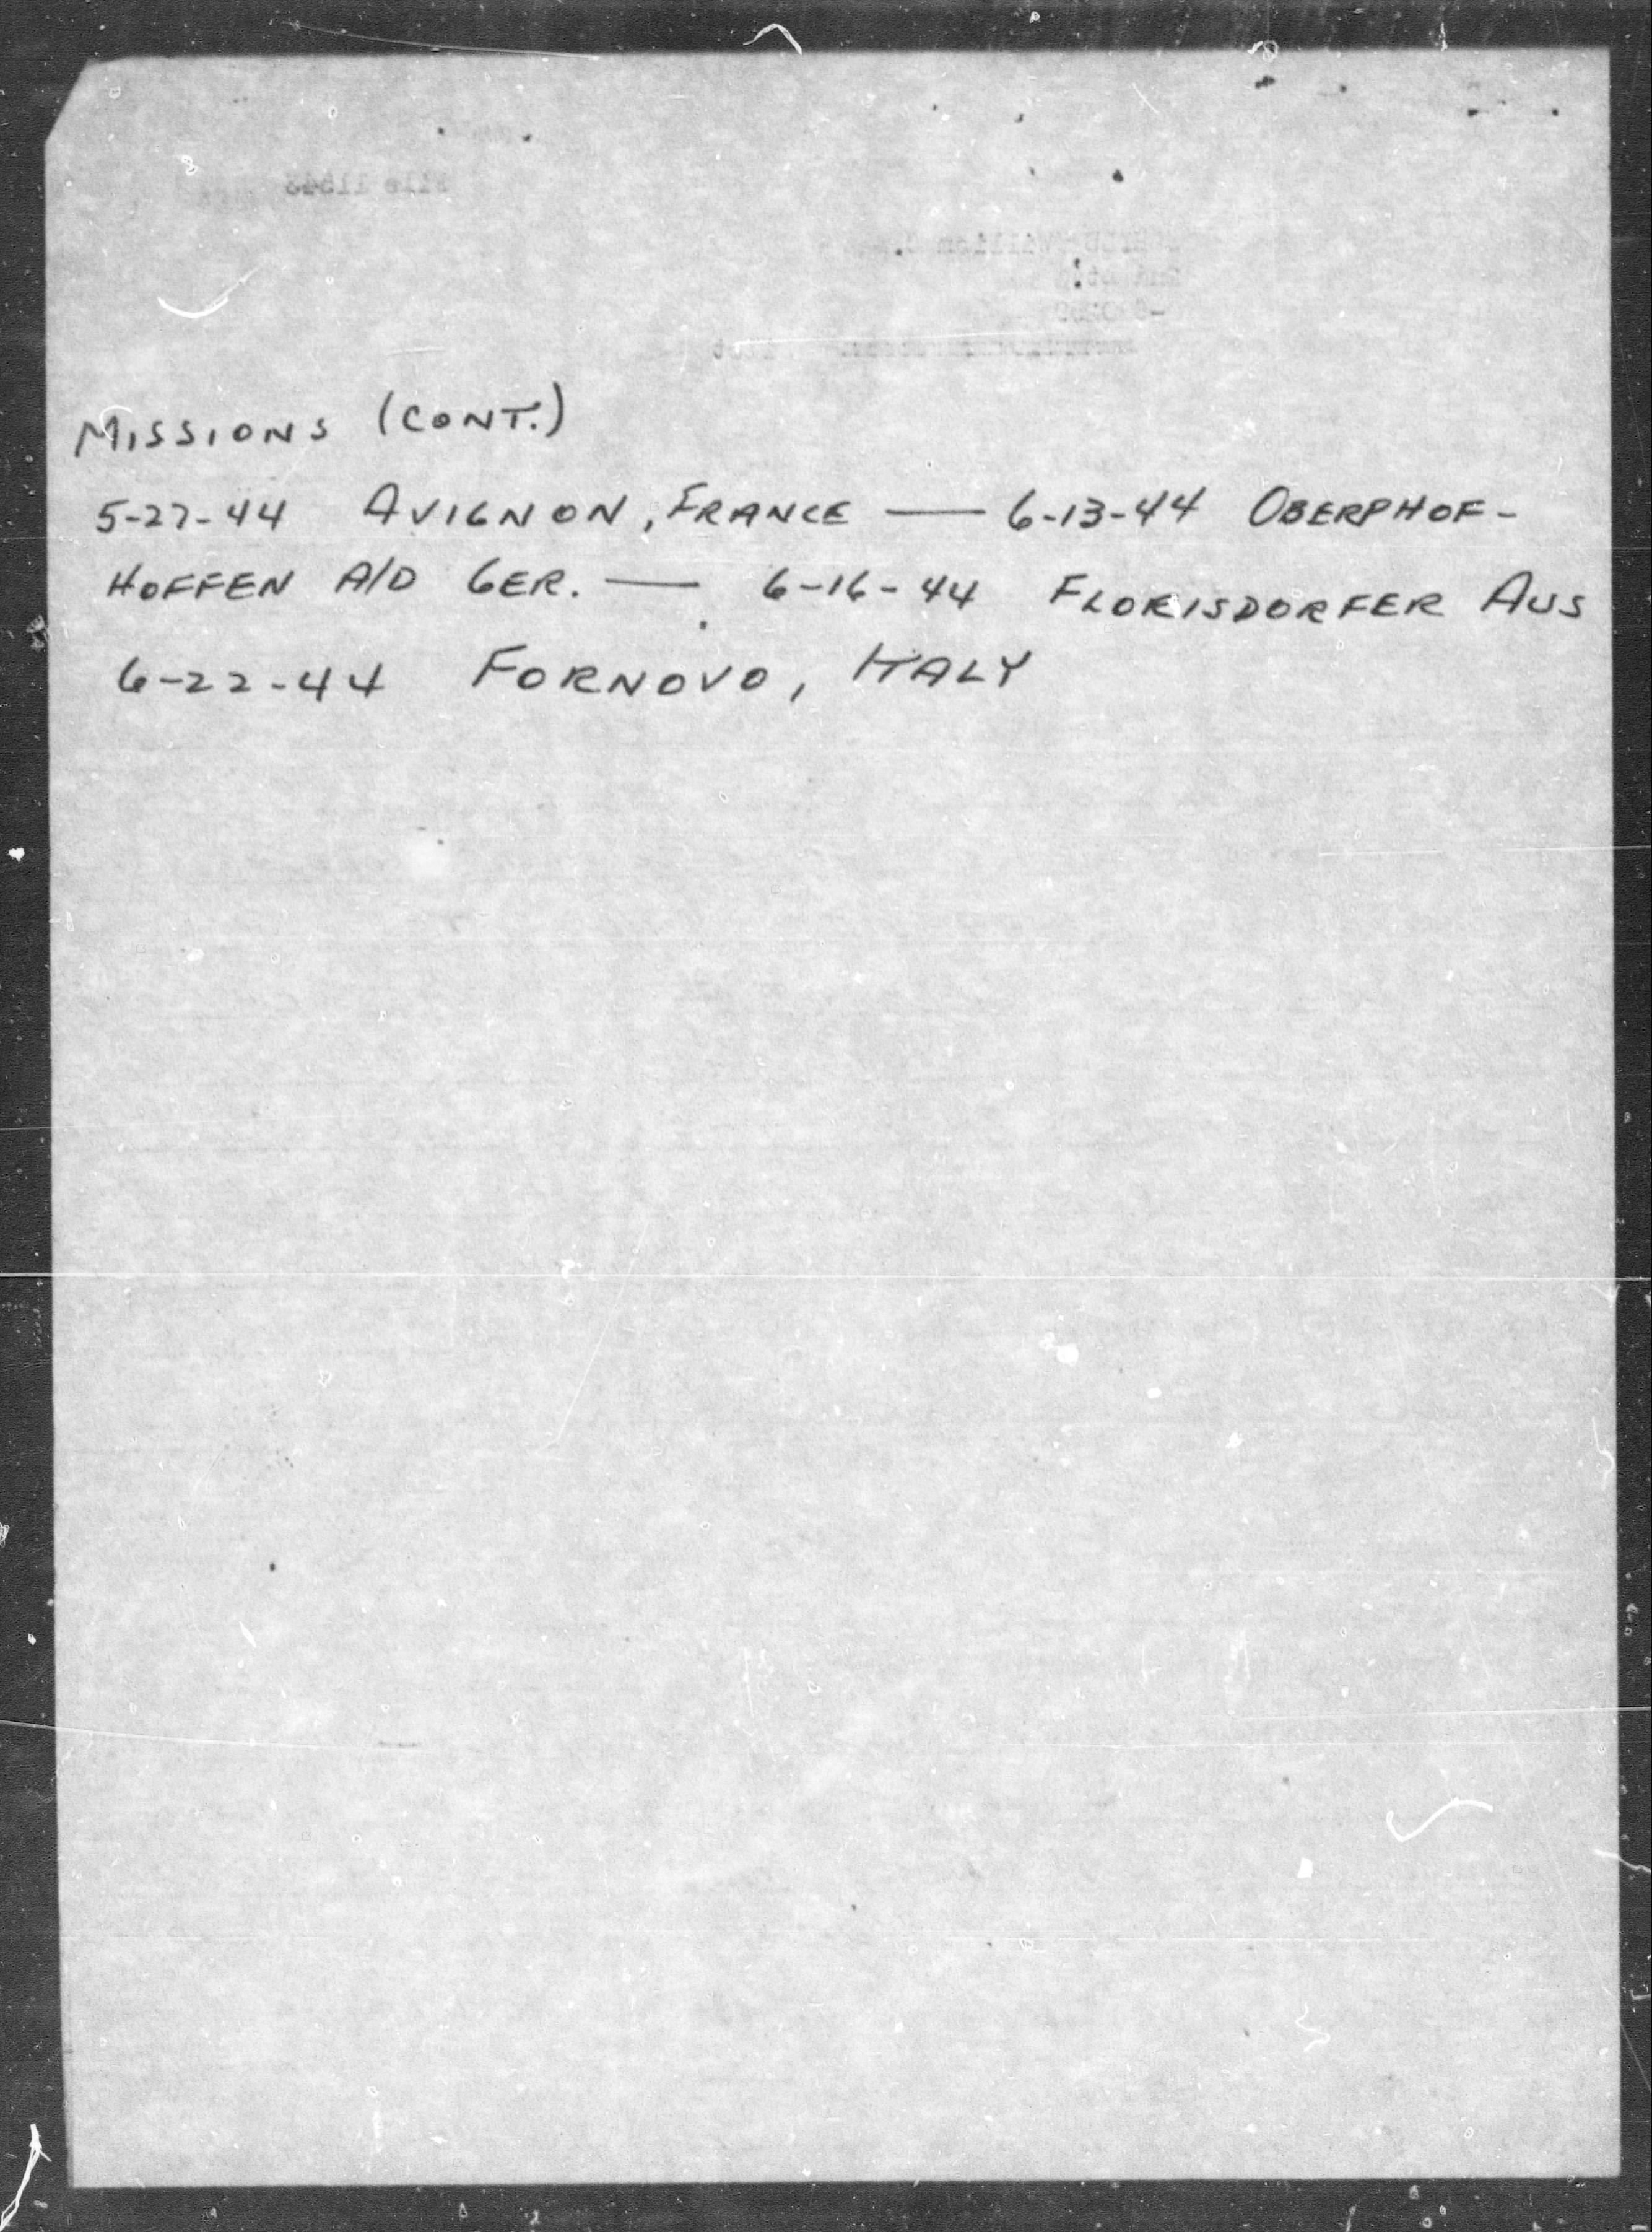 MISSIONS (CONT.)
5-27-44 AVIGNON, FRANCE — 6-13-44 OBERPHOF-
HOFFEN A/D GER. — 6-16-44 FLORISDORFER AUS
6-22-44 FORNOVO, ITALY